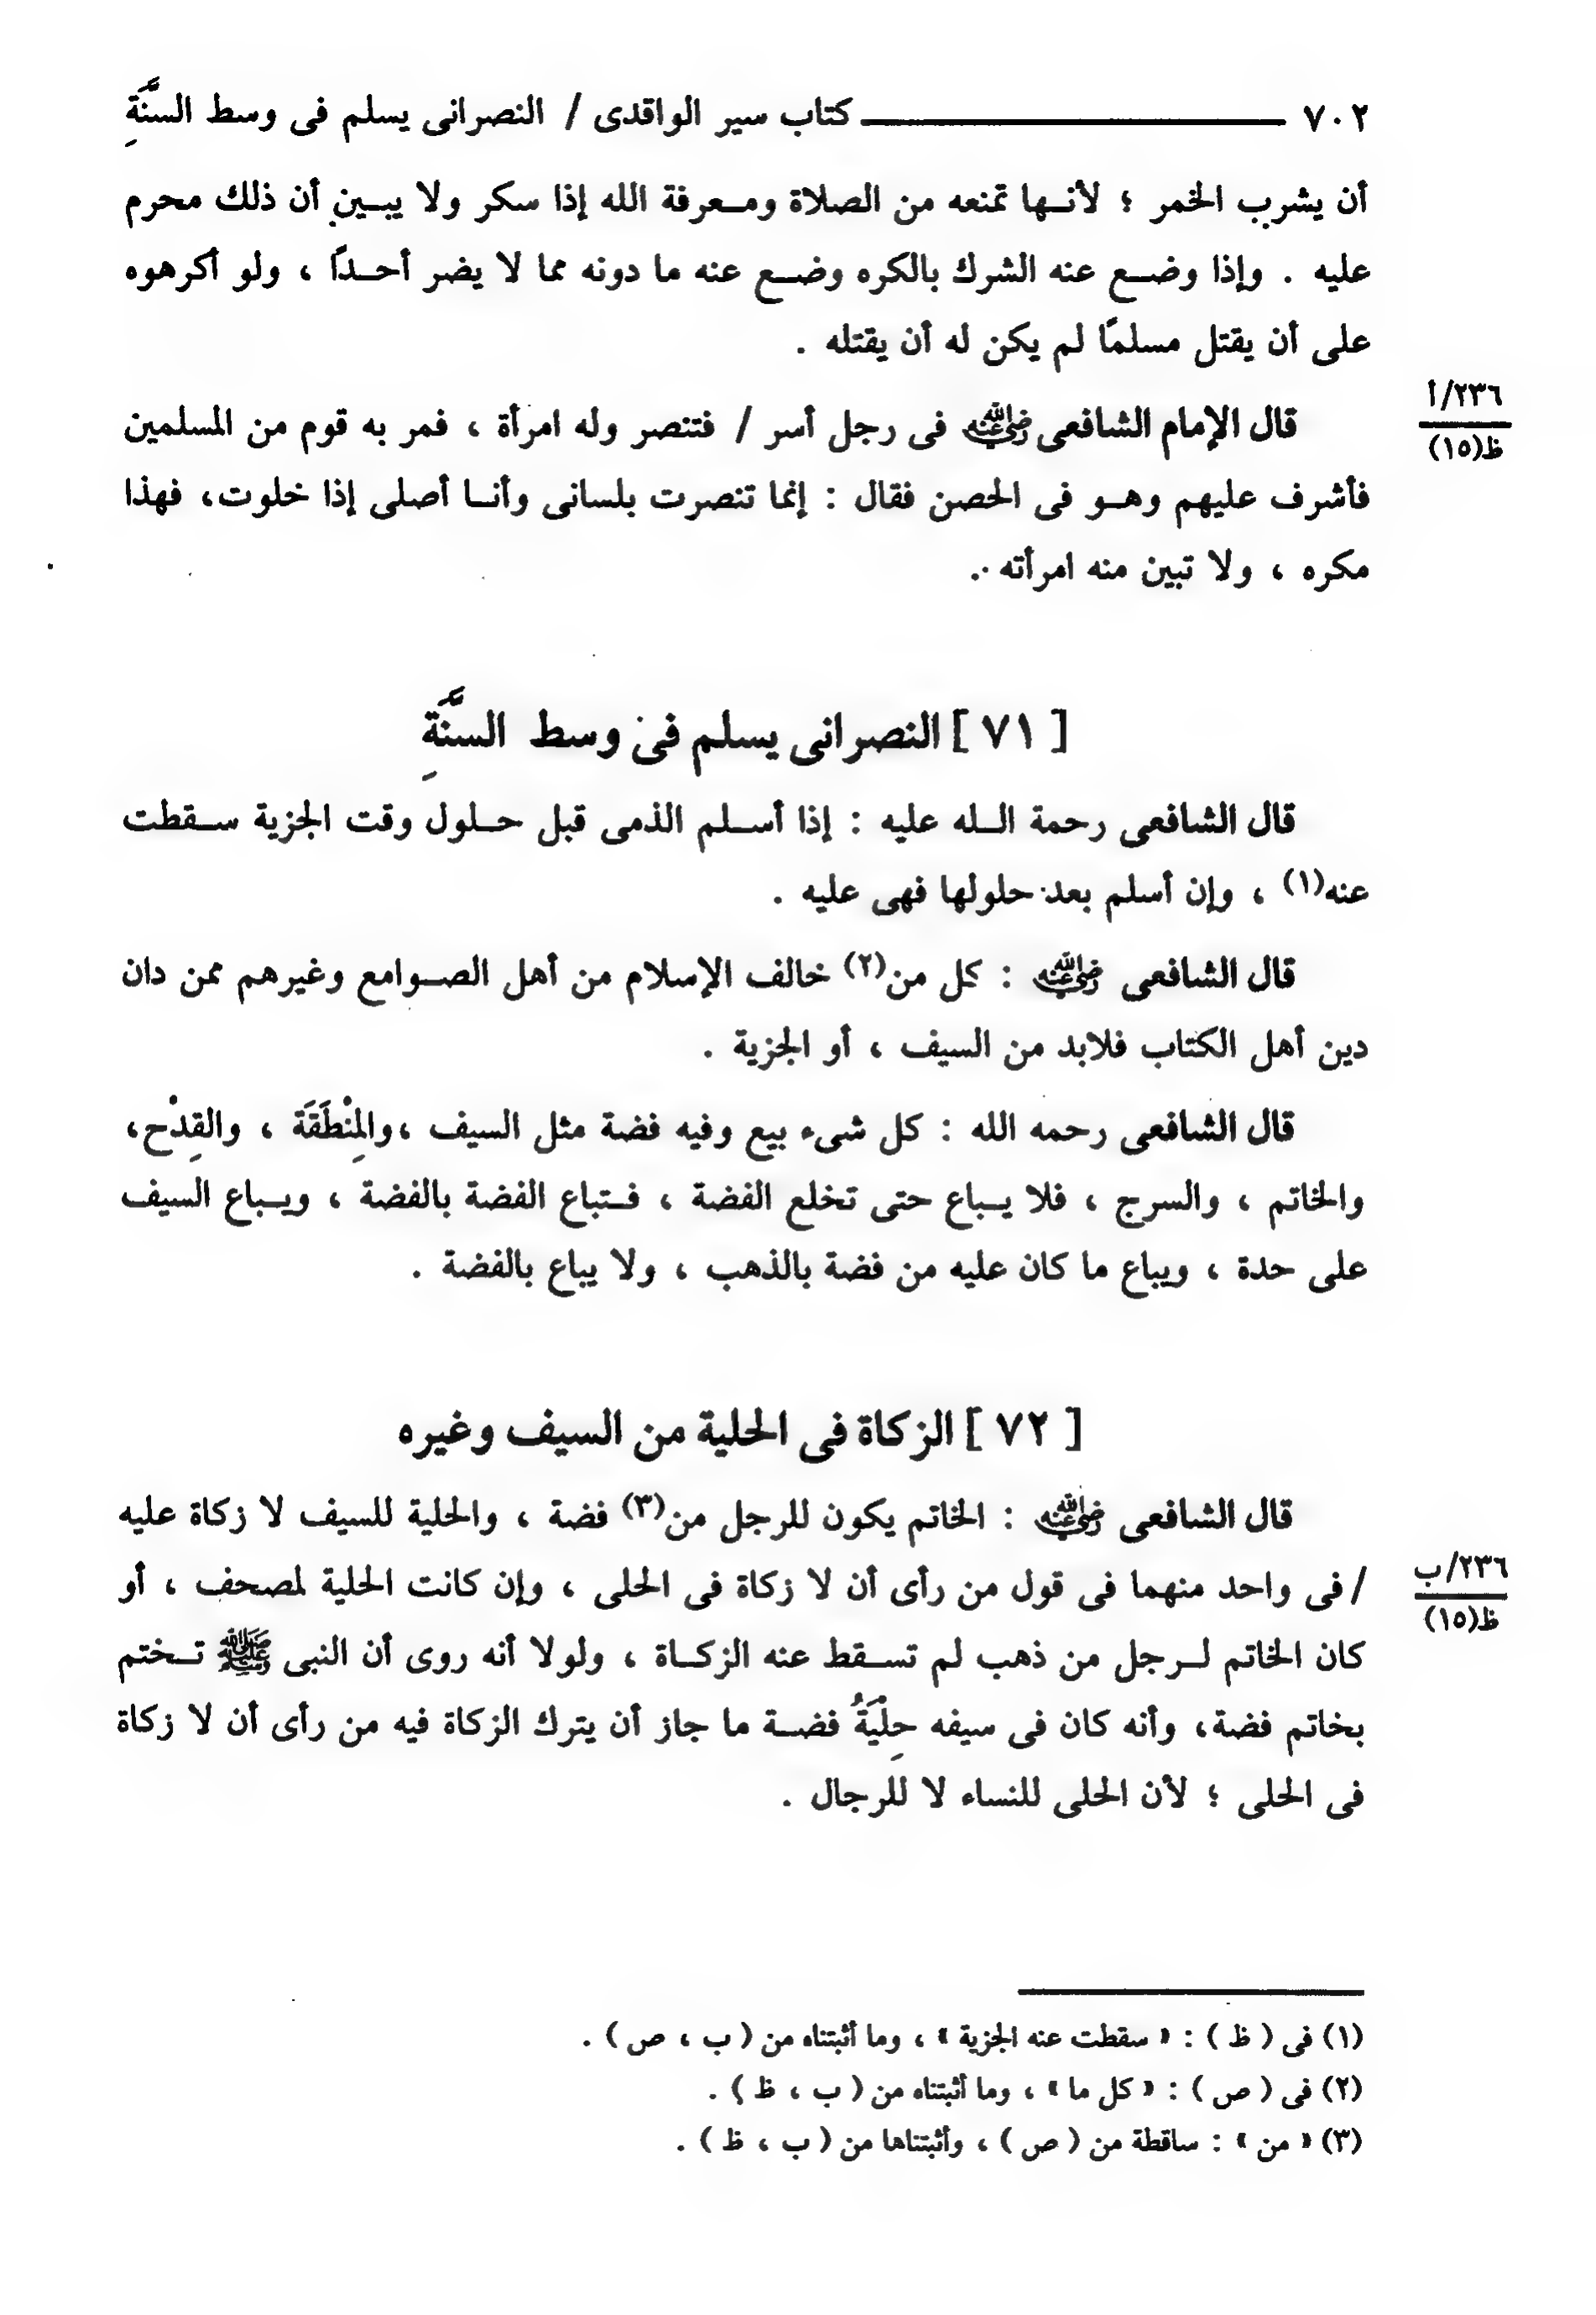 ٧٠٢ كتاب سير الواقدى / النصرانى يسلم فى وسط السَّنَةِ
أن يشرب الخمر ؛ لأنـها تمنعه من الصلاة ومـعرفة الله إذا سكر ولا يبـين أن ذلك محرم
عليه . وإذا وضـع عنه الشرك بالكره وضـع عنه ما دونه مما لا يضر أحـدًا ، ولو أكرهوه
على أن يقتل مسلمًا لم يكن له أن يقتله .
٢٣٦/أ
ظ(١٥)
قال الإمام الشافعى رضي الله عنه فى رجل أسر / فتنصر وله امرأة ، فمر به قوم من المسلمين
فأشرف عليهم وهـو فى الحصن فقال : إنما تنصرت بلسانى وأنـا أصلى إذا خلوت، فهذا
مكره ، ولا تبين منه امرأته .
[ ٧١ ] النصرانى يسلم فى وسط السَّنَةِ
قال الشافعى رحمة الـله عليه : إذا أسـلم الذمى قبل حـلول وقت الجزية سـقطت
عنه(١) ، وإن أسلم بعد حلولها فهى عليه .
قال الشافعى رضي الله عنه : كل من(٢) خالف الإسلام من أهل الصـوامع وغيرهم ممن دان
دين أهل الكتاب فلابد من السيف ، أو الجزية .
قال الشافعى رحمه الله : كل شىء بيع وفيه فضة مثل السيف ،والمِنْطَقَة ، والقِدْح،
والخاتم ، والسرج ، فلا يـباع حتى تخلع الفضة ، فـتباع الفضة بالفضة ، ويـباع السيف
على حدة ، ويباع ما كان عليه من فضة بالذهب ، ولا يباع بالفضة .
[ ٧٢ ] الزكاة فى الحلية من السيف وغيره
قال الشافعى رضي الله عنه : الخاتم يكون للرجل من(٣) فضة ، والحلية للسيف لا زكاة عليه
٢٣٦/ب
ظ(١٥)
/ فى واحد منهما فى قول من رأى أن لا زكاة فى الحلى ، وإن كانت الحلية لمصحف ، أو
كان الخاتم لـرجل من ذهب لم تسـقط عنه الزكـاة ، ولولا أنه روى أن النبى ﷺ تـختم
بخاتم فضة، وأنه كان فى سيفه حِلْيَةُ فضـة ما جاز أن يترك الزكاة فيه من رأى أن لا زكاة
فى الحلى ؛ لأن الحلى للنساء لا للرجال .
(١) فى ( ظ ) : « سقطت عنه الجزية » ، وما أثبتناه من ( ب ، ص ) .
(٢) فى ( ص ) : « كل ما » ، وما أثبتناه من ( ب ، ظ ) .
(٣) « من » : ساقطة من ( ص ) ، وأثبتناها من ( ب ، ظ ) .